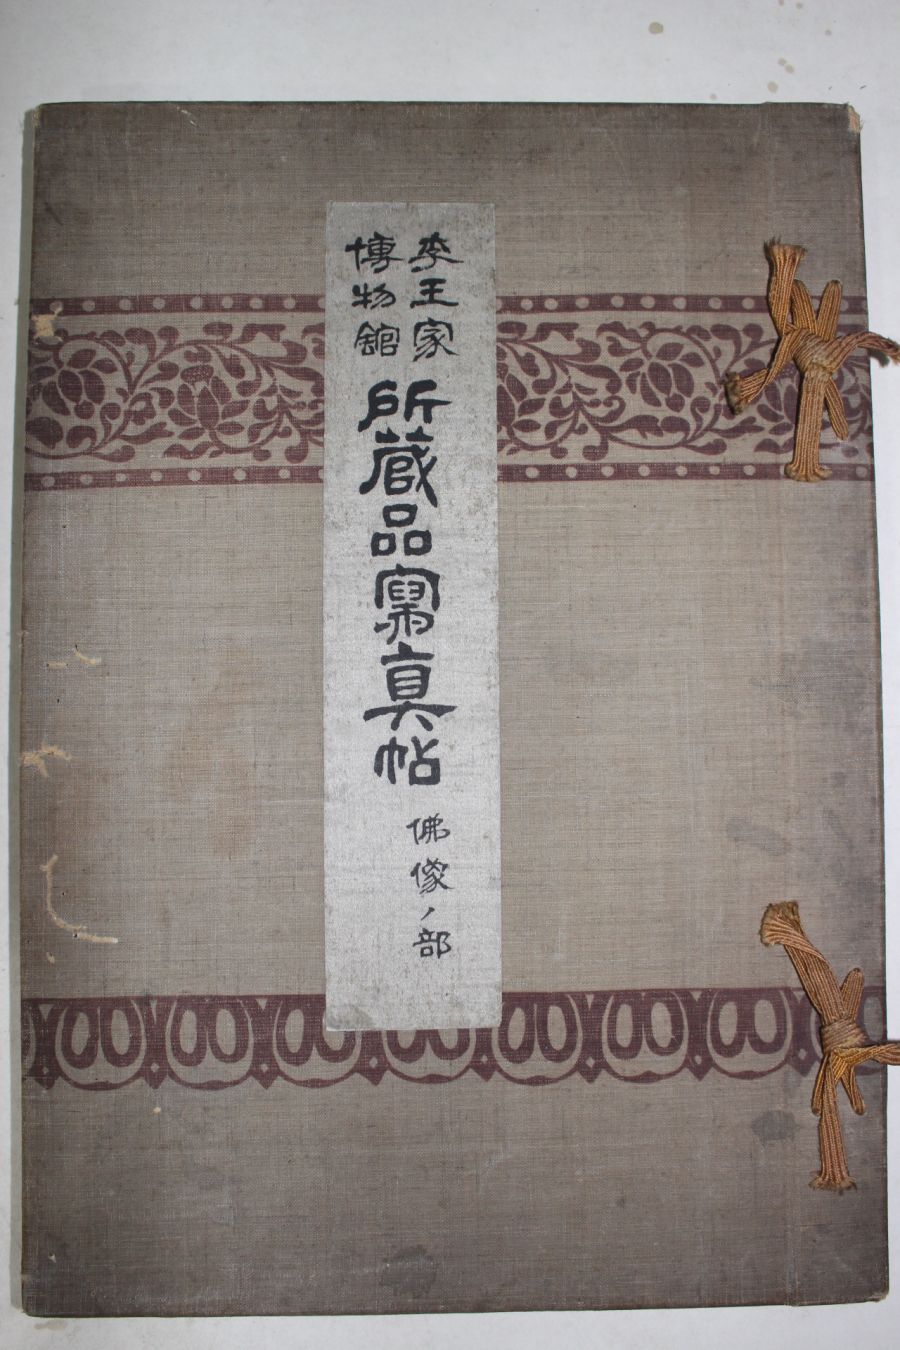 李王家
博物館
所蔵品寫真帖
佛像ノ部